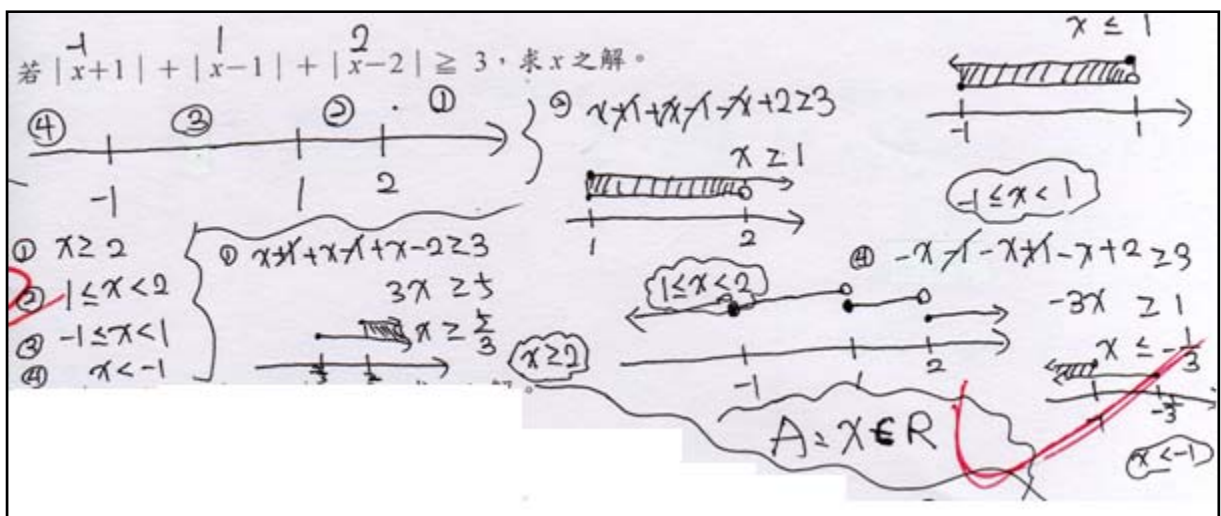 若 | x+1 | + | x−1 | + | x−2 | ≧ 3，求 x 之解。
-1 1 2
④ ③ ② ①
-1 1 2
① x ≥ 2
② 1 ≤ x < 2
③ -1 ≤ x < 1
④ x < -1
① x+1+x-1+x-2≥3
3x ≥ 5
x ≥ 5/3
x≥2
② x+1+x-1-x+2≥3
x ≥ 1
1 2
1≤x<2
x ≤ 1
-1 1
-1 ≤ x < 1
④ -x-1-x+1-x+2≥3
-3x ≥ 1
x ≤ -1/3
-1 -1/3
x<-1
-1 1 2
A: x∈R